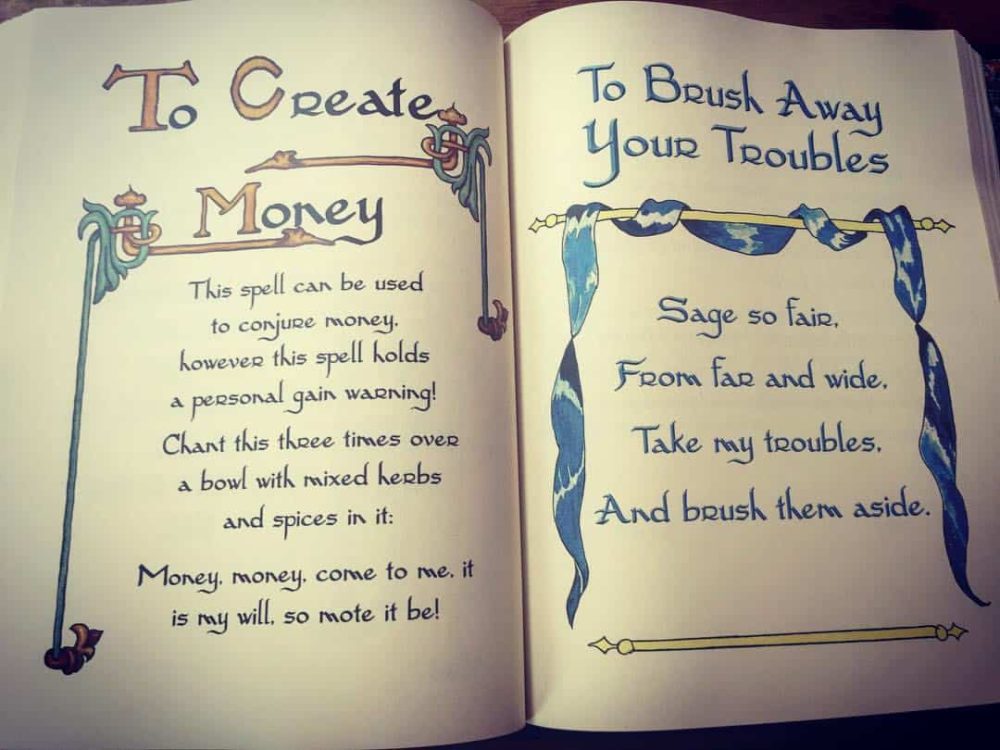 To Create
Money
This spell can be used
to conjure money.
however this spell holds
a personal gain warning!
Chant this three times over
a bowl with mixed herbs
and spices in it:
Money. money. come to me. it
is my will. so mote it be!
To Brush Away
Your Troubles
Sage so fair.
From far and wide.
Take my troubles.
And brush them aside.